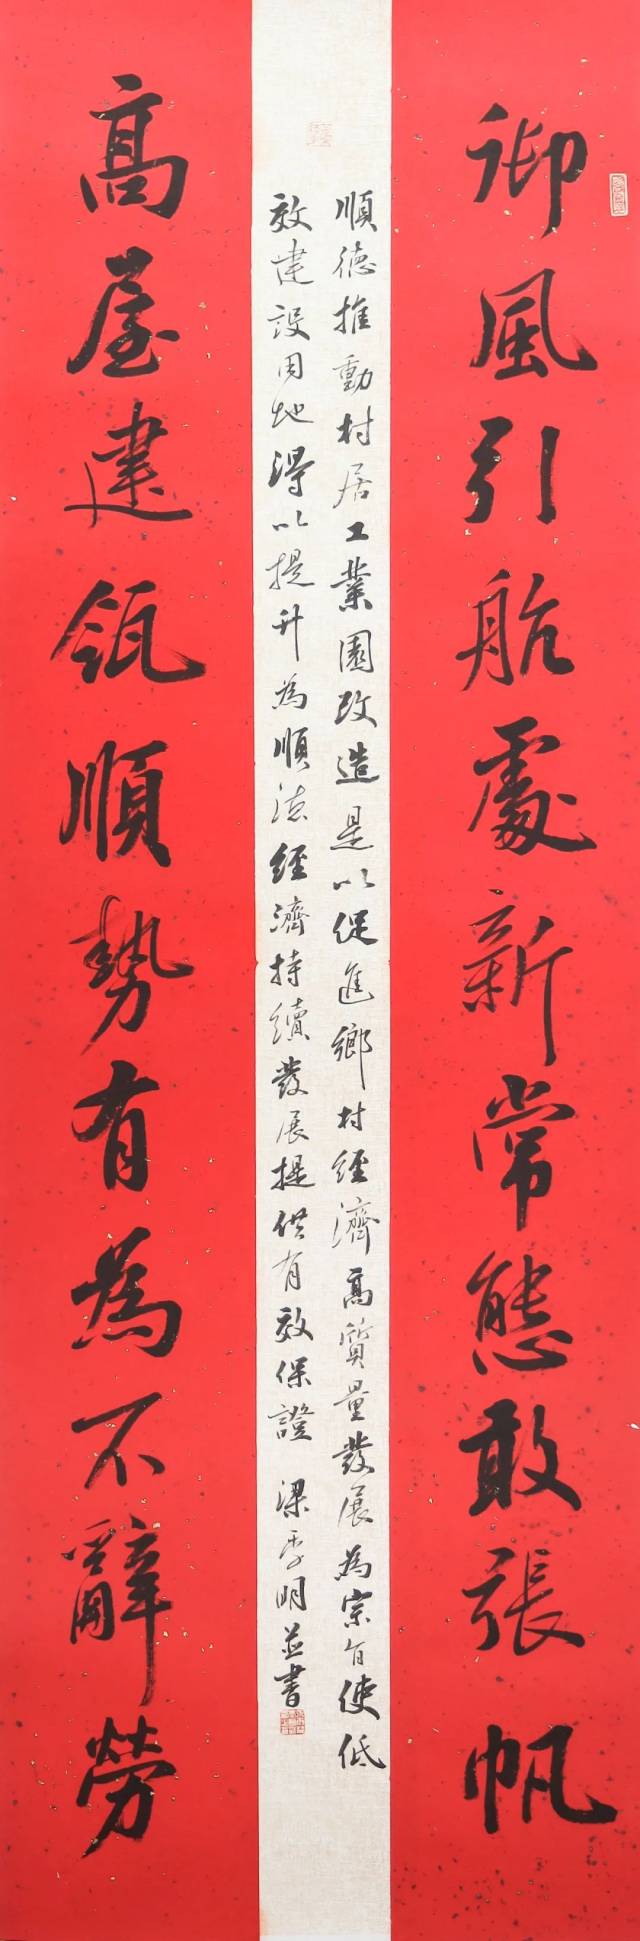 御風引航處新常態敢張帆
順德推動村居工業園改造是以促進鄉村經濟高質量發展為宗旨使低
效建設用地得以提升為順德經濟持續發展提供有效保證 梁季明並書
高屋建瓴順勢有為不辭勞